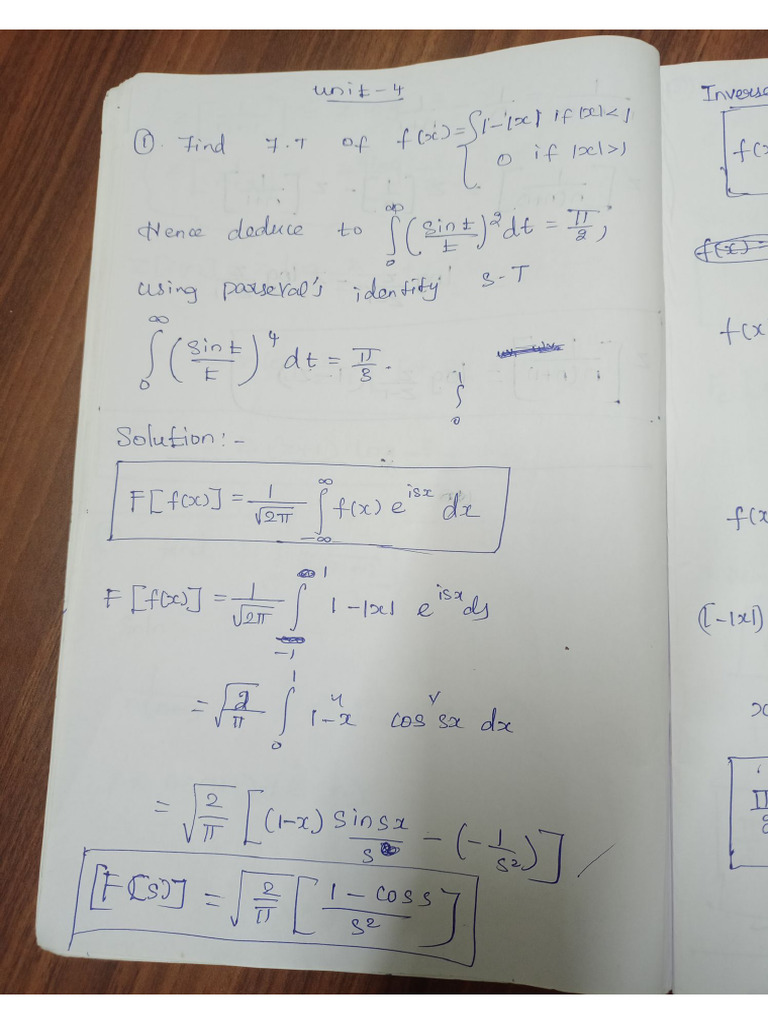 unit-4
①. Find F.T of f(x) = { 1-|x| if |x|<1
0 if |x|>1
Hence deduce to ∫₀^∞ (sint/t)² dt = π/2,
using parseval's identify S-T
∫₀^∞ (sint/t)⁴ dt = π/3.
∫₀¹
Solution:-
F[f(x)] = 1/√2π ∫₋∞^∞ f(x) e^isx dx
F[f(x)] = 1/√2π ∫₋₁¹ 1-|x| e^isx ds
= √2/π ∫₀¹ 1-x cos sx dx
u v
= √2/π [(1-x) sinsx/s - (-1/s²)]
[F(s)] = √2/π [1-cos s/s²]
Inverse
f(x
f(x)=
f(x
f(x
(1-|x|)
x
π
2